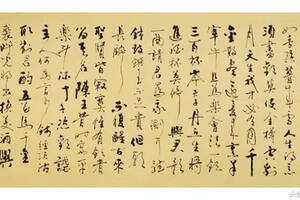 如青絲暮成雪人生得意
須盡歡莫使金樽空對
月天生我材必有用千
金散盡還復來烹羊
宰牛且為樂會須一飲
三百杯岑夫子丹丘生將
進酒杯莫停與君歌
一曲請君為我傾耳聽
鐘鼓饌玉不足貴但願
長醉不復醒古來
聖賢皆寂寞惟有飲者
留其名陳王昔時宴平
樂斗酒十千恣歡謔
主人何為言少錢徑須沽
取對君酌五花馬千金
裘呼兒將出換美酒與